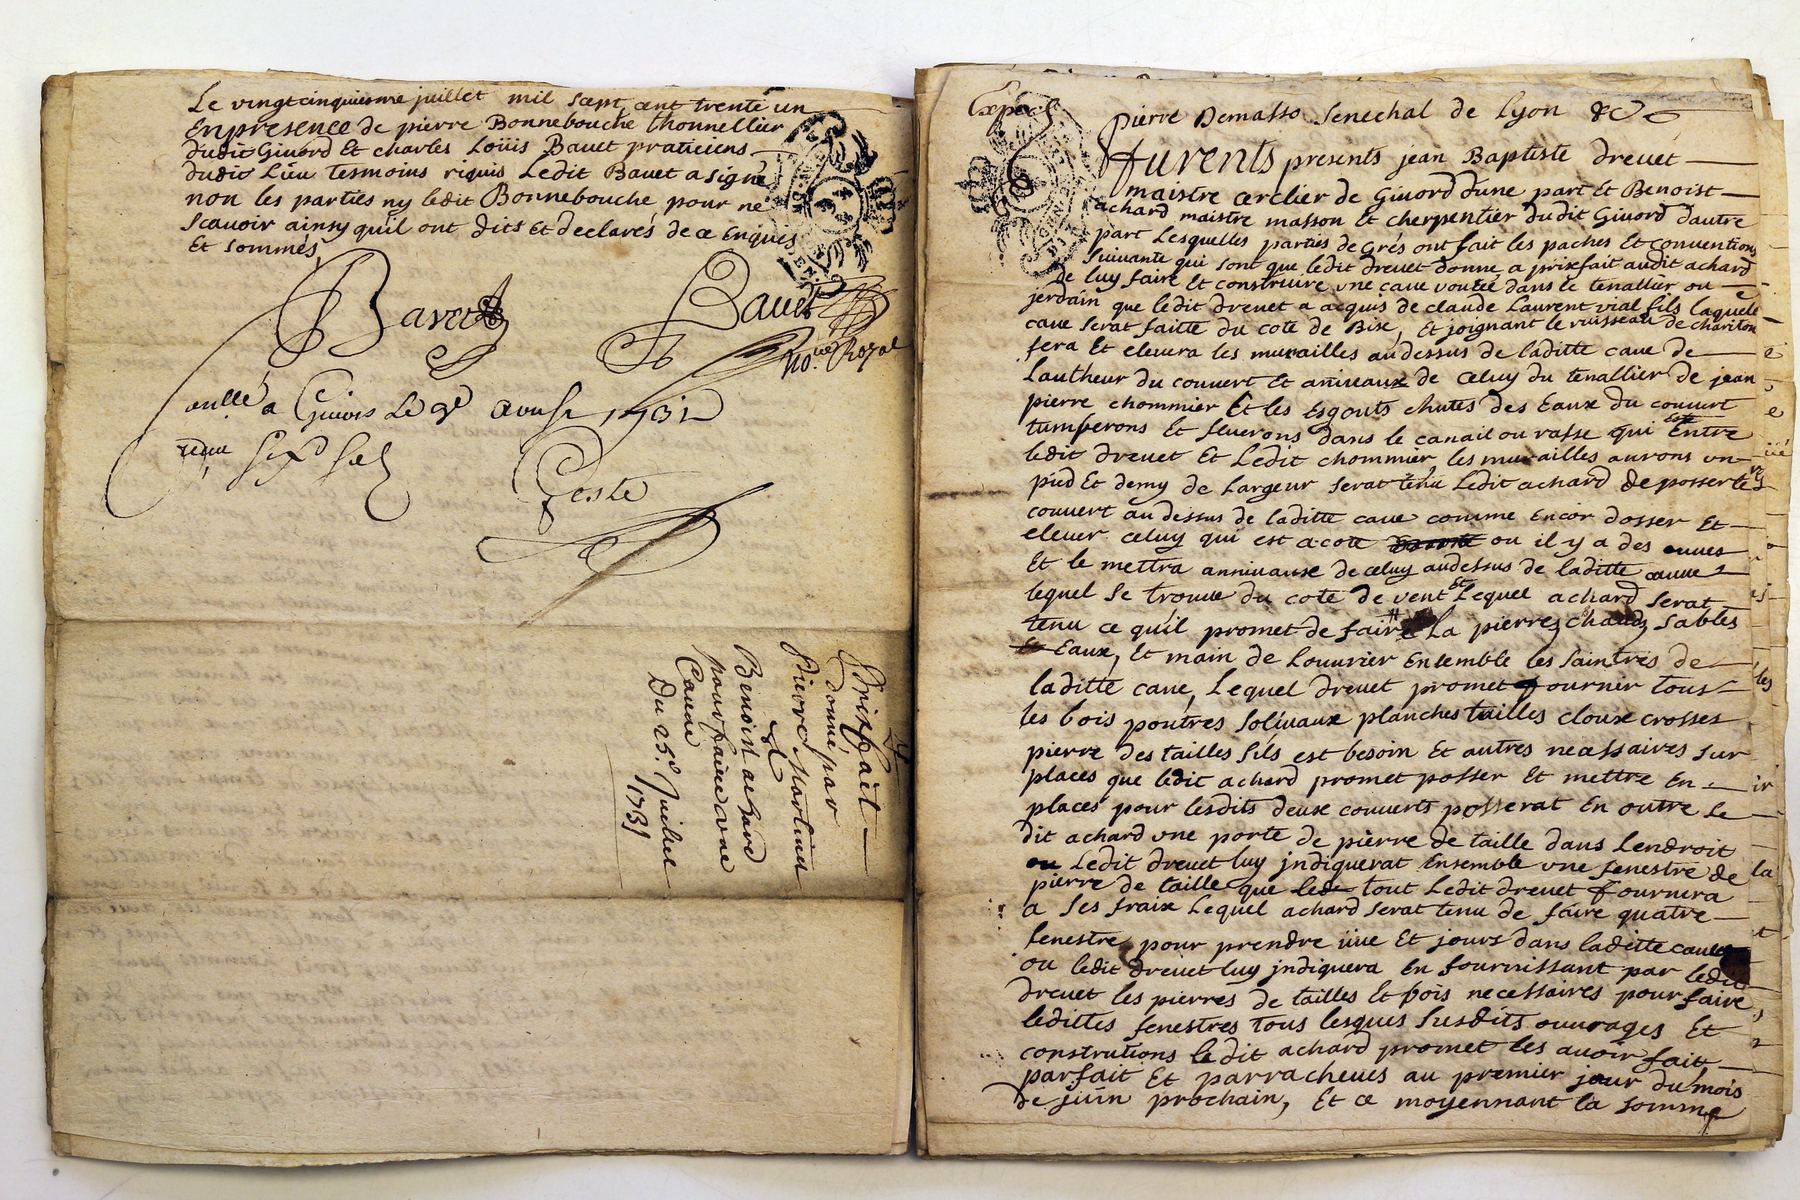 Le vingtcinquiesme juillet mil sept cent trente un
En presence de pierre Bonnebouche thonnellier
dudit Givord Et charles Loüis Bavet praticiens
dudit Lieu tesmoins riquis Ledit Bavet a signé
non les parties ny ledit Bonnebouche pour ne
scavoir ainsy quil ont dits et declarés de ce Enquis
Et sommés
Bavet Bavet
no.re Royal
a Givors Le 9e aoust 1731
receu six sol
Geste
Prixfait
donné par
Pierre
&
Benoist achard
pour faire une
Cauue
Du 25e Juillet
1731
Expedié
pierre Demasso Senechal de Lyon &
ffurents presents jean Baptiste drevet
maistre cerclier de Givord dune part Et Benoist
achard maistre masson Et cherpentier dudit Givord dautre
part Lesquelles parties de Grés ont fait les paches Et conventions
suivante qui sont que ledit drevet donne a prixfait audit achard
de luy faire Et construire une cave voutée dans le tenallier ou
jerdain que ledit drevet a acquis de claude Laurent vial fils laquelle
cave serat faitte du cote de Bise, Et joignant le ruisseau de chariton
fera Et elevera les murailles au dessus de laditte cave de
Lautheur du couvert Et anivaux de celuy du tenallier de jean
pierre chommier Et les Esgouts chutes des Eaux du couvert
tumberons Et fluerons dans le canail ou rasse qui Est Entre
ledit drevet Et Ledit chommier, les murailles aurons un
pied Et demy de Largeur serat tenu Ledit achard de posser le
couvert au dessus de laditte cave comme Encor dosser Et
elever celuy qui est a cote ou il y a des cuves
Et le mettra annivaux de celuy audessus de laditte cauve
lequel se trouve du cote de vent Et Lequel achard serat
tenu ce qu'il promet de faire La pierre, chaud, sables
Et Eaux, Et main de Louvrier Ensemble les saintres de
laditte cave, Lequel drevet promet fournir tous
les bois poutres solivaux planches tuilles cloux crosses
pierre des tailles sils est besoin Et autres necessaires sur
places que ledit achard promet posser Et mettre En
places pour lesdits deux couverts posserat En outre Le
dit achard une porte de pierre de taille dans Lendroit
ou Ledit drevet luy jndiquerat Ensemble une fenestre de
pierre de taille que led tout Ledit drevet fournira
a ses fraix Lequel achard serat tenu de faire quatre
fenestre pour prendre üue Et jours dans laditte cauve
ou ledit drevet luy jndiquera En fournissant par ledit
drevet les pierres de tailles Et bois necessaires pour faire
leditttes fenestres tous lesques susdits ouvrages Et
construtions ledit achard promet les avoir fait
parfait Et parracheves au premier jour du mois
de juin prochain, Et ce moyennant la somme